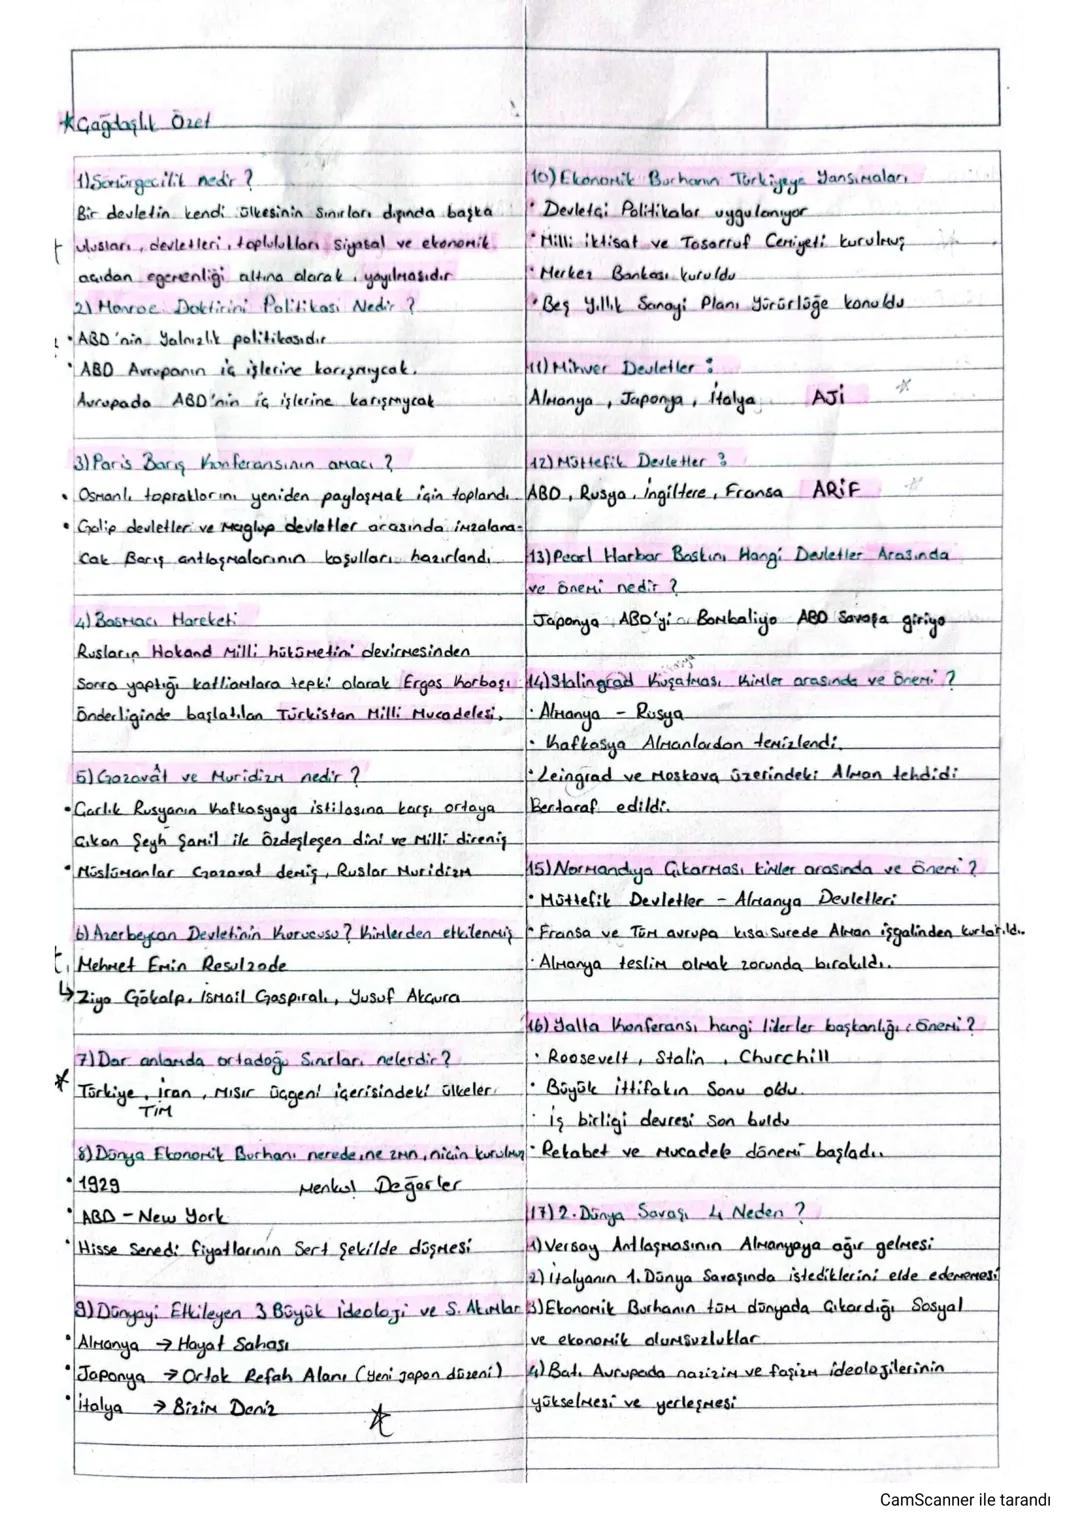 *Çağdaşlık Özet
1) Sömürgecilik nedir?
Bir devletin kendi ülkesinin sınırları dışında başka
ulusları, devletleri, toplulukları siyasal ve ekonomik
açıdan egemenliği altına alarak, yayılmasıdır
2) Monroe Doktirini Politikası Nedir?
• ABD'nin Yalnızlık politikasıdır
• ABD Avrupanın iç işlerine karışmıycak.
Avrupada ABD'nin iç işlerine karışmycak
3) Paris Barış Konferansının amacı?
• Osmanlı topraklarını yeniden paylaşmak için toplandı
• Galip devletler ve Mağlup devletler arasında imzalana-
cak Barış antlaşmalarının koşulları hazırlandı
4) Basmacı Hareketi
Rusların Hokand Milli hükümetini devirmesinden
Sonra yaptığı katliamlara tepki olarak Ergaş Korbaşı
Önderliginde başlatılan Türkistan Milli Mucadelesi.
5) Gazavât ve Muridizm nedir?
• Çarlık Rusyanın Kafkasyaya istilasına karşı ortaya
Çıkan Şeyh Şamil ile özdeşleşen dini ve Milli direniş
• Müslümanlar Gazavat demiş, Ruslar Muridizm
6) Azerbeycan Devletinin Kurucusu? Kimlerden etkilenmiş
t. Mehmet Emin Resulzade
↳ Ziya Gökalp, İsmail Gaspıralı, Yusuf Akçura
7) Dar anlamda ortadoğu Sınırları nelerdir?
* Türkiye, iran, Mısır üçgeni içerisindeki ülkeler
TİM
8) Dünya Ekonomik Burhanı nerede, ne zmn, niçin kurulmuş
• 1929 Menkul Değerler
• ABD - New York
• Hisse Senedi fiyatlarının Sert şekilde düşmesi
9) Dünyayi Etkileyen 3 Büyük ideoloji ve S. Akımlar
• Almanya → Hayat Sahası
• Japonya → Ortak Refah Alanı (Yeni japon düzeni)
• İtalya → Bizim Deniz
*
10) Ekonomik Burhanın Türkiyeye Yansımaları
• Devletçi Politikalar uygulanıyor
• Milli iktisat ve Tasarruf Cemiyeti kurulmuş
• Merkez Bankası kuruldu
• Beş Yıllık Sanayi Planı Yürürlüğe konuldu
11) Mihver Devletler:
Almanya, Japonya, İtalya AJİ *
12) Müttefik Devletler:
ABD, Rusya, İngiltere, Fransa ARİF *
13) Pearl Harbor Baskını Hangi Devletler Arasında
ve önemi nedir?
Japonya ABD'yi Bombaliyo ABD Savaşa giriyo
14) Stalingrad Kuşatması Kimler arasında ve Önemi?
• Almanya - Rusya
• Kafkasya Almanlardan temizlendi.
• Leingrad ve Moskova üzerindeki Alman tehdidi
Bertaraf edildi.
15) Normandiya Çıkarması kimler arasında ve önemi?
• Müttefik Devletler - Almanya Devletleri
• Fransa ve Tüm avrupa kısa surede Alman işgalinden kurtarıldı.
• Almanya teslim olmak zorunda bırakıldı.
16) Yalta Konferansı hangi liderler başkanlığı Önemi?
• Roosevelt, Stalin, Churchill
• Büyük ittifakın Sonu oldu.
• iş birliği devresi Son buldu
• Rekabet ve Mucadele dönemi başladı.
17) 2. Dünya Savaşı 4 Neden?
1) Versay Antlaşmasının Almanyaya ağır gelmesi
2) italyanın 1. Dünya Savaşında istediklerini elde edememesi
3) Ekonomik Burhanın tüm dünyada Çıkardığı Sosyal
ve ekonomik olumsuzluklar
4) Batı Avrupada nazizim ve faşizm ideolojilerinin
yükselmesi ve yerleşmesi
CamScanner ile tarandı